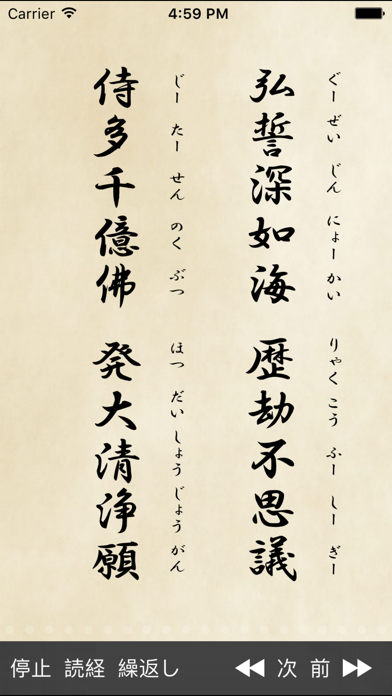 Carrier 4:59 PM
弘誓深如海 歴劫不思議
ぐー ぜい じん にょー かい りゃく こう ふー しー ぎー
侍多千億佛 発大清浄願
じー たー せん のく ぶつ ほつ だい しょう じょう がん
停止 読経 繰返し 次 前